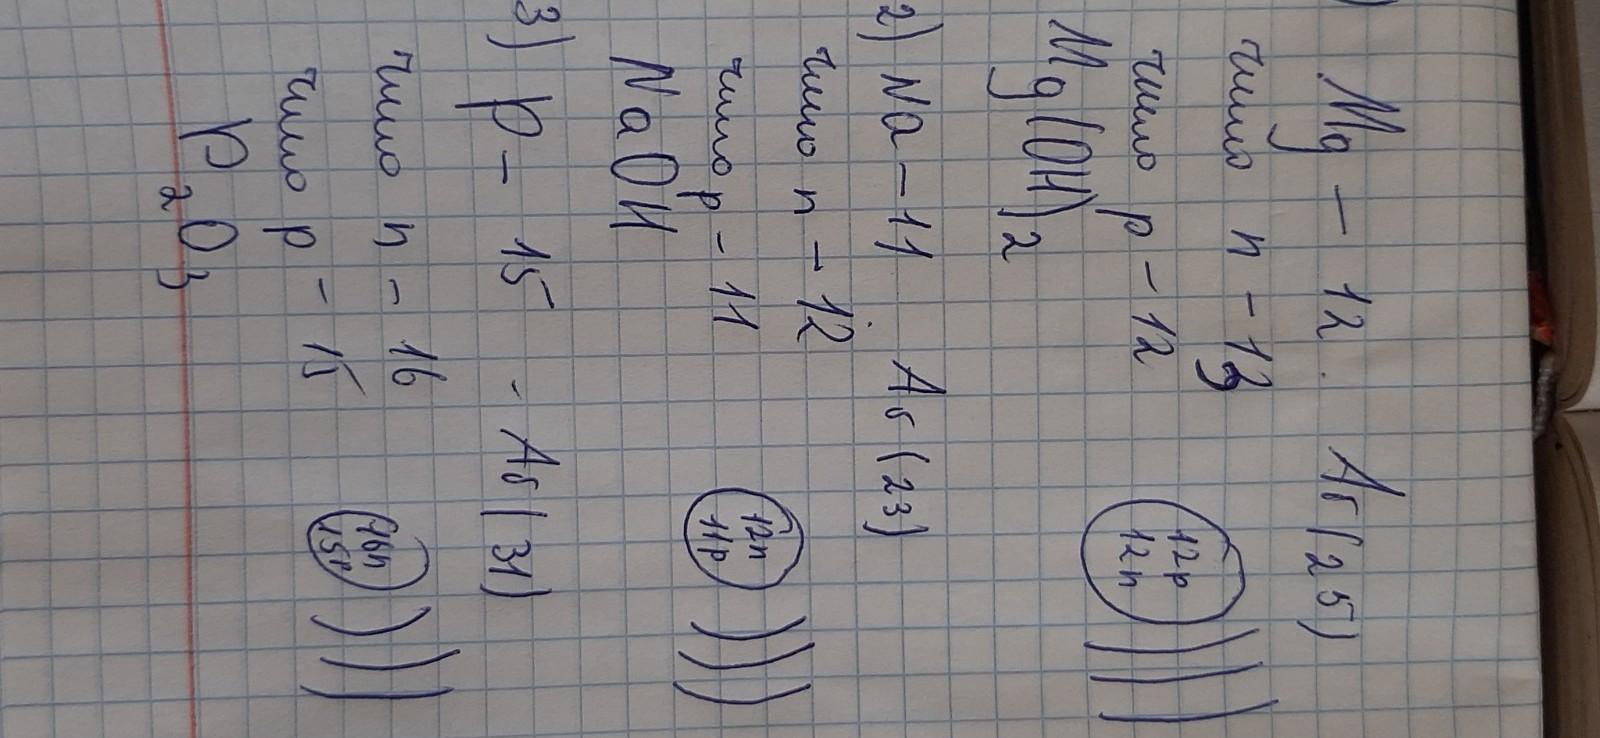 )
Mg – 12. Ar (25)
число n – 13
число p – 12
12p
12n
Mg(OH)2
2) Na – 11 Ar (23)
число n – 12
число p – 11
12n
11p
NaOH
3) P – 15 - Ar (31)
число n – 16
число p – 15
16n
15p
P2O3